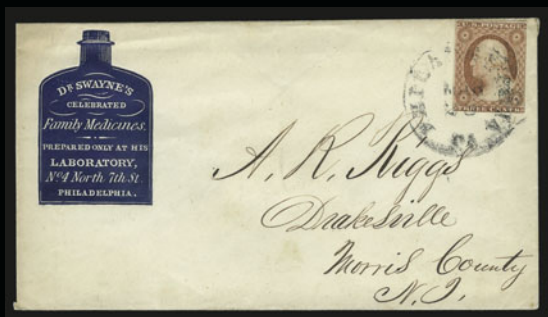 Dr SWAYNE'S
CELEBRATED
Family Medicines,
PREPARED ONLY AT HIS
LABORATORY,
No 4 North 7th St
PHILADELPHIA.
U.S. POSTAGE
THREE CENTS
PA
A. R. Riggs
Drakesville
Morris County
N.J.